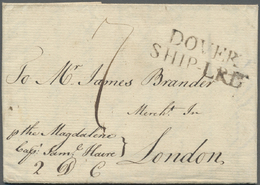 7
DOVER
SHIP-LRE
To Mr. James Brander
Mercht. In
London
p the Magdalene
Capt. Saml. Havre
2 D C